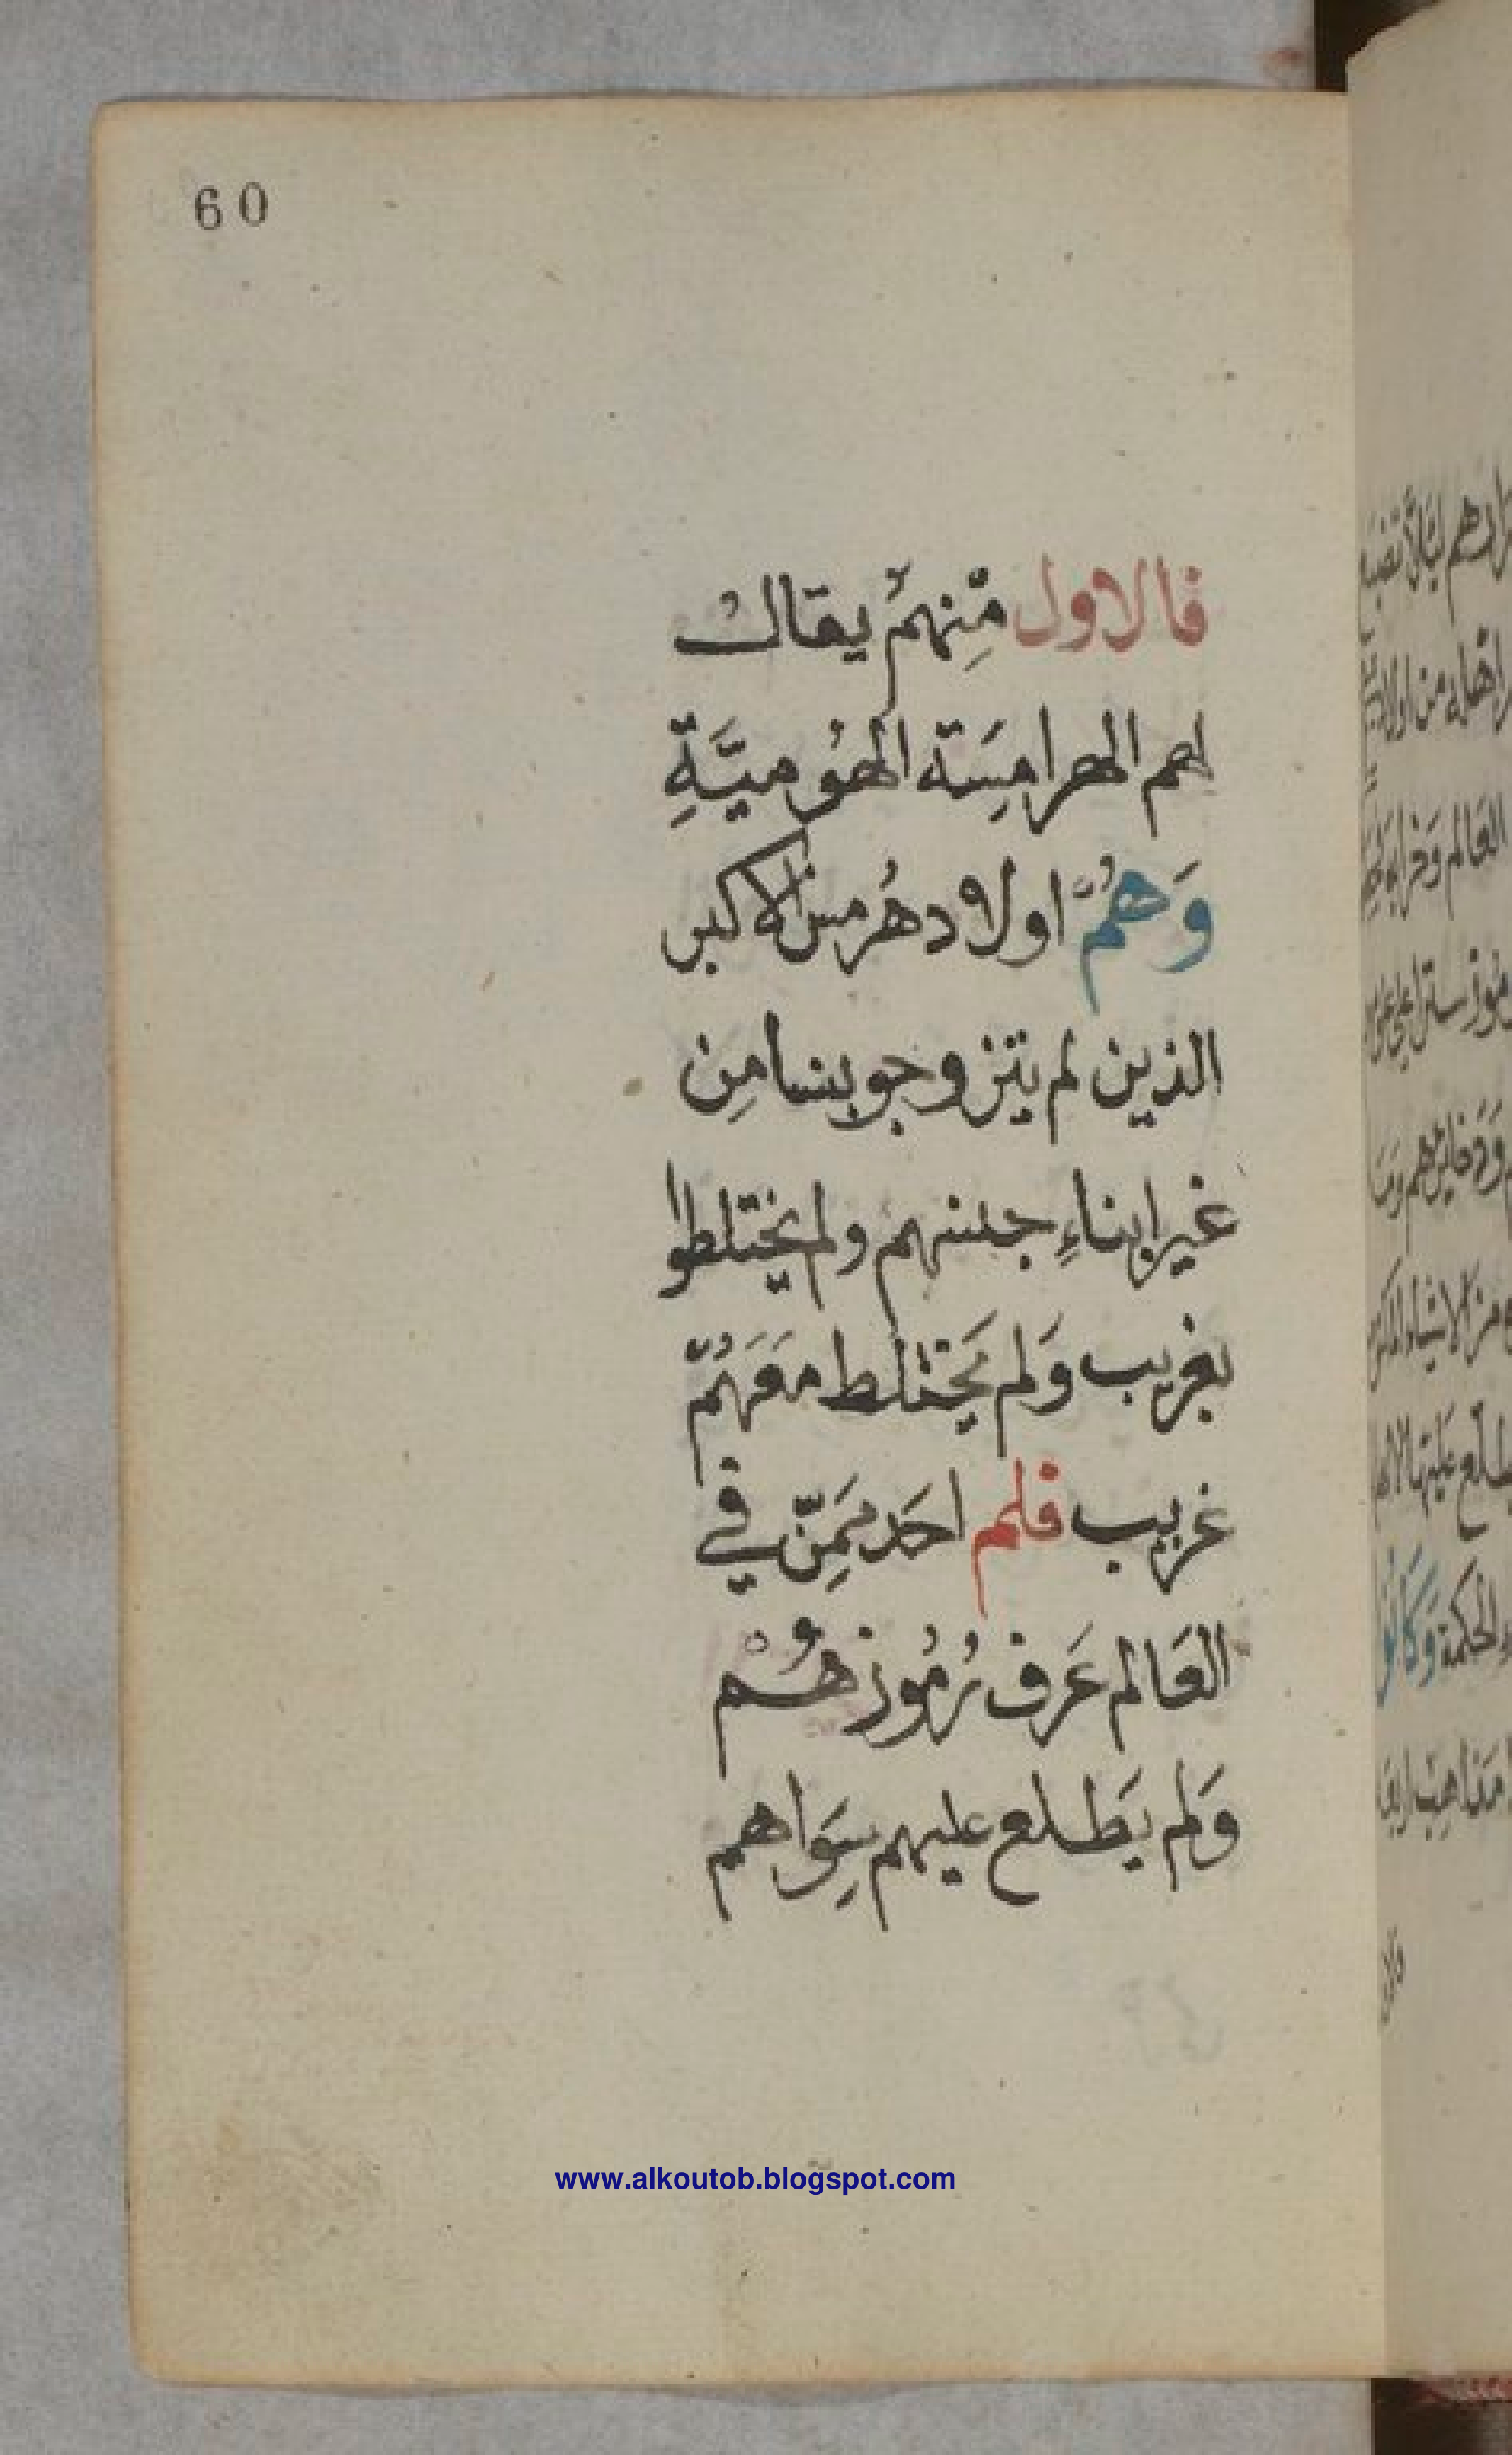 60
فالاول مِّنهمْ يقالْ
لهم الهرامِسَة الهوُميَّةِ
وَهُمْ اولاد هُرمس الاكبر
الذين لم يتزوجو بنسا مِن
غير ابناءِ جنسهم ولم يختلطوا
بغريب وَلم يَختلط معَهُمّ
غريب فلم احَد مِمَنّ في
العَالم عَرف رُمُوزهُمْ
وَلم يَطلع عليهم سِوَاهم
www.alkoutob.blogspot.com